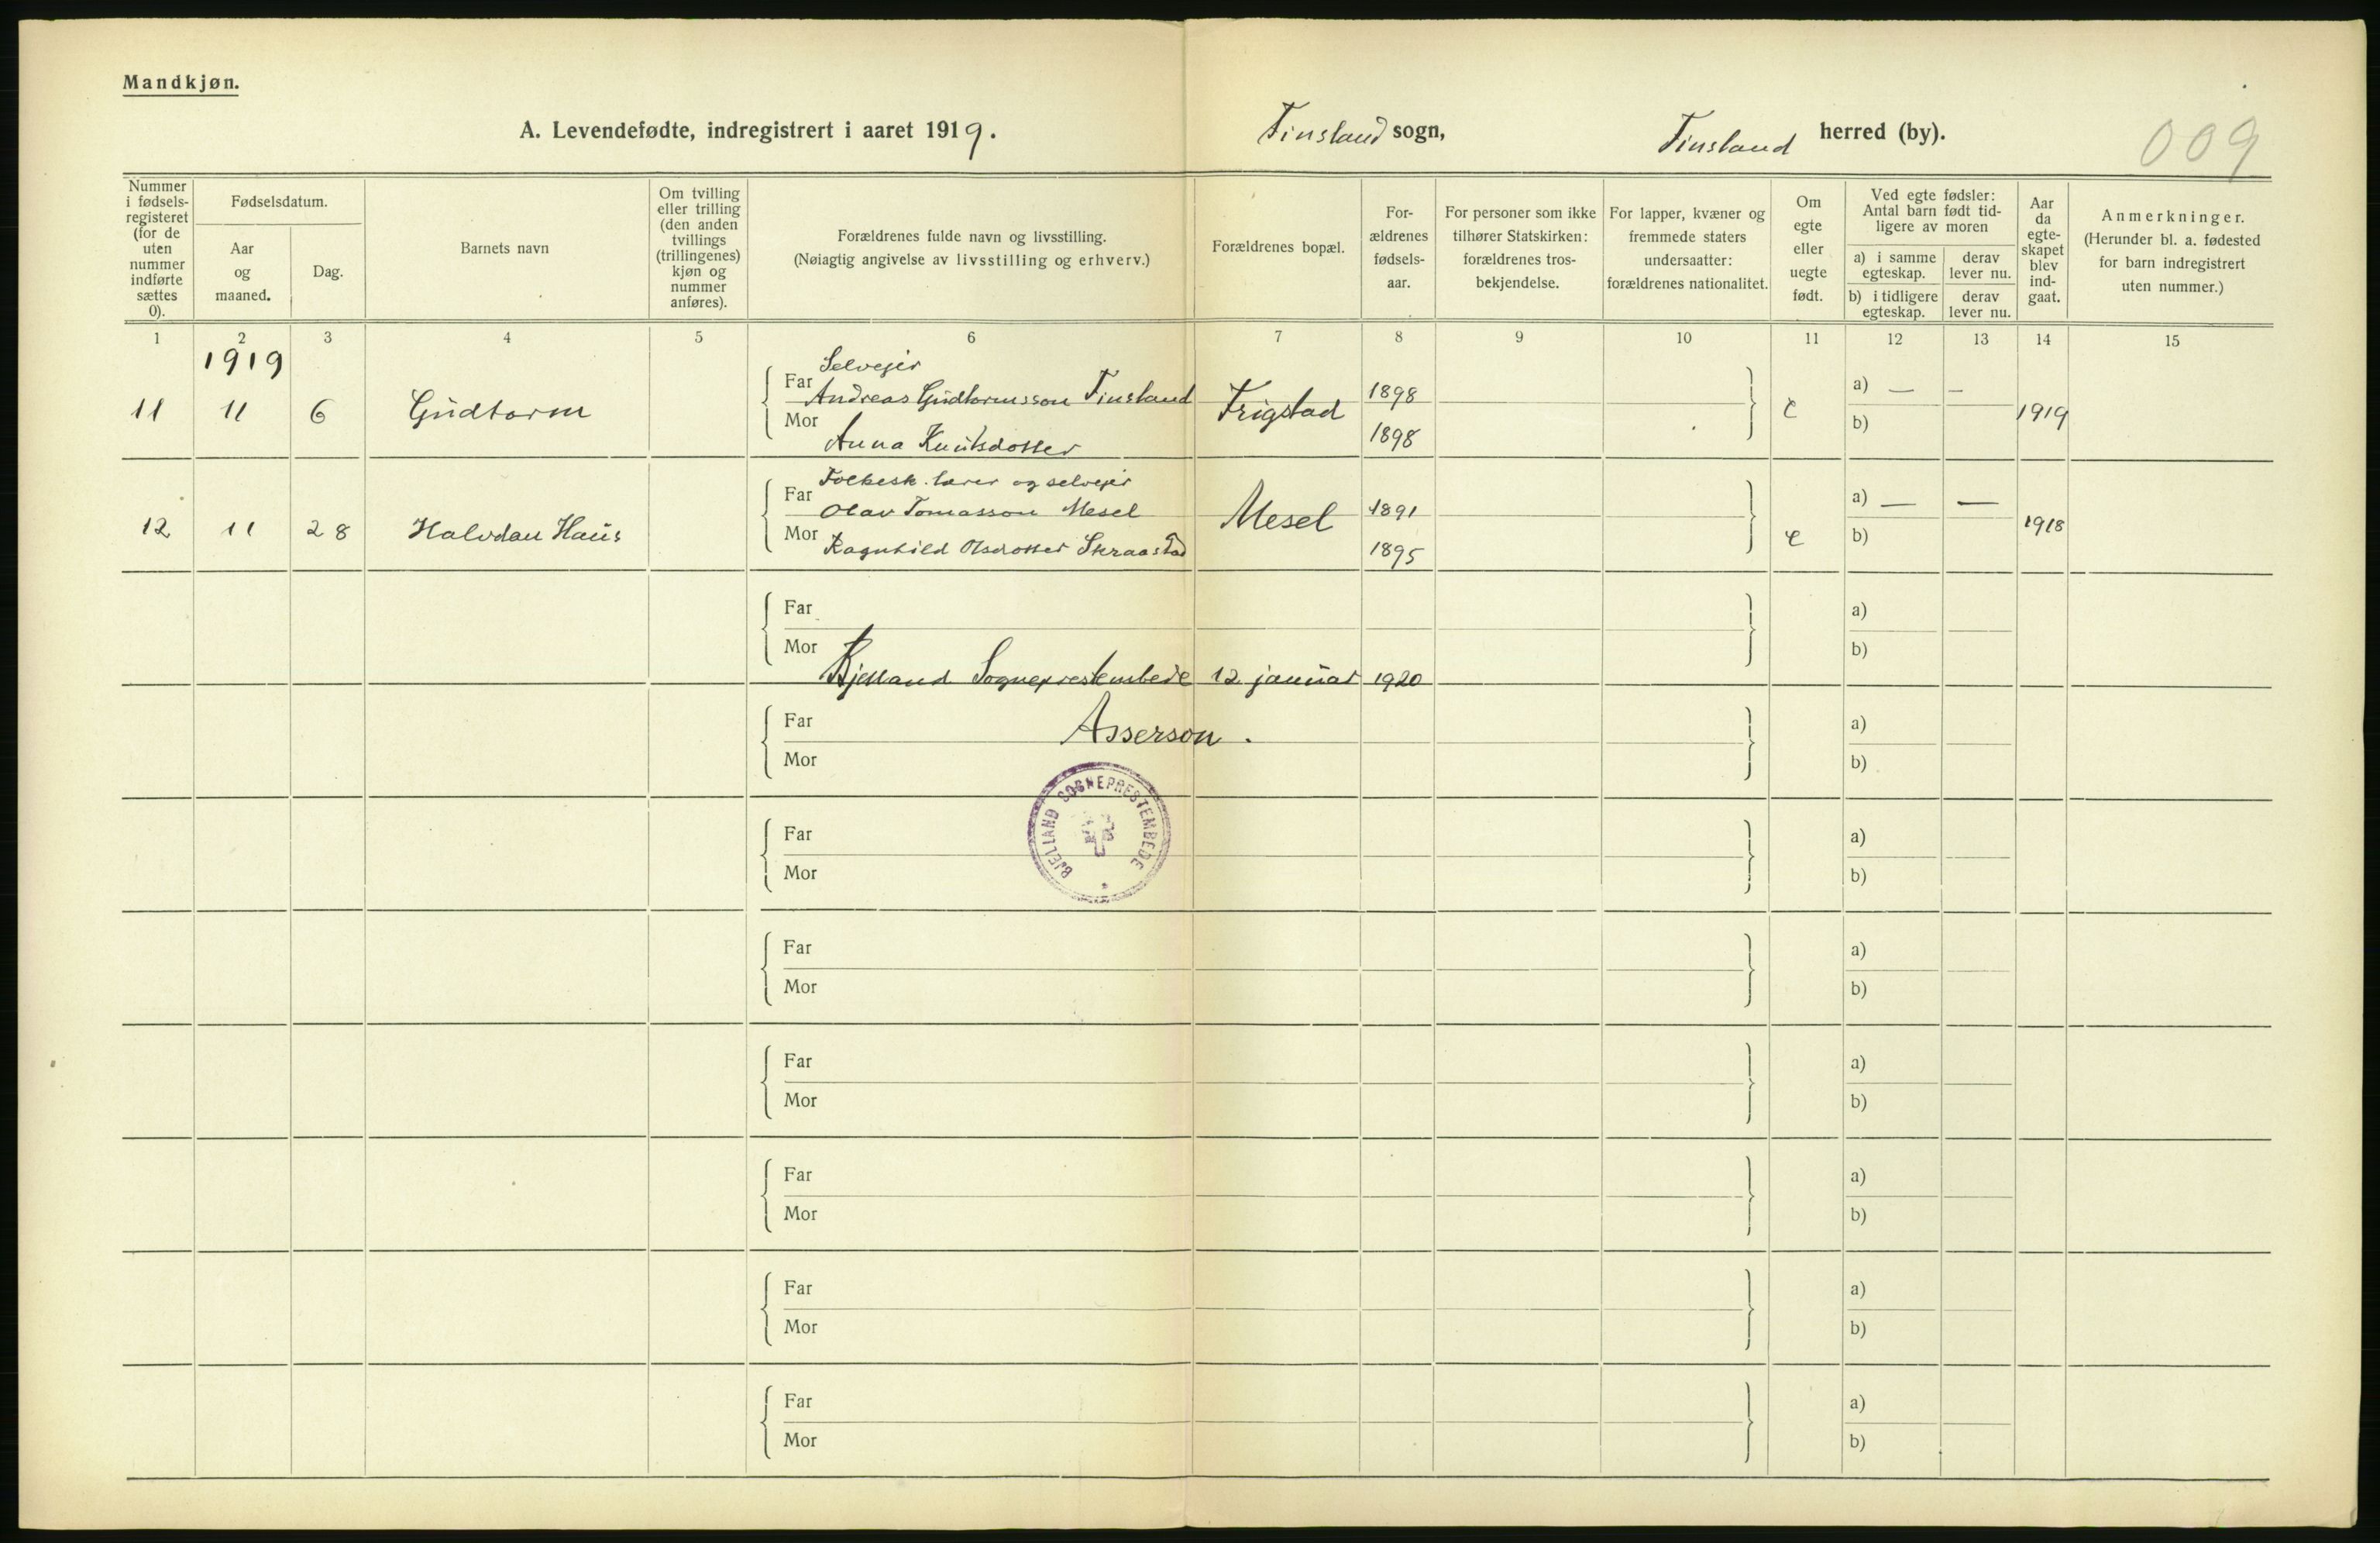 Mandkjøn.
A. Levendefødte, indregistrert i aaret 1919. Finsland sogn, Finsland herred (by). 009
Nummer i fødsels-registeret (for de uten nummer indførte sættes 0).
Fødselsdatum.
Aar og maaned.
Dag.
Barnets navn
Om tvilling eller trilling (den anden tvillings (trillingenes) kjøn og nummer anføres).
Forældrenes fulde navn og livsstilling.
(Nøiagtig angivelse av livsstilling og erhverv.)
Forældrenes bopæl.
For-ældrenes fødsels-aar.
For personer som ikke tilhører Statskirken: forældrenes tros-bekjendelse.
For lapper, kvæner og fremmede staters undersaatter: forældrenes nationalitet.
Om egte eller uegte født.
Ved egte fødsler: Antal barn født tid-ligere av moren
a) i samme egteskap.
derav lever nu.
b) i tidligere egteskap.
derav lever nu.
Aar da egte-skapet blev ind-gaat.
Anmerkninger.
(Herunder bl. a. fødested for barn indregistrert uten nummer.)
1 2 3 4 5 6 7 8 9 10 11 12 13 14 15
1919
Selvejer
11 11 6 Gudtorm Far Andreas Gudtormsson Finsland Frigstad 1898 e a) — — 1919
Mor Anna Knutsdotter 1898 b)
Folkesk. lærer og selvejer
12 11 28 Halvdan Haus Far Olav Tomasson Mesel Mesel 1891 e a) — — 1918
Mor Ragnhild Olsdotter Skraastad 1895 b)
Far a)
Mor b)
Bjelland Sogneprestembede 12. januar 1920
Far Asserson. a)
Mor b)
BJELLAND SOGNEPRESTEMBEDE
Far a)
Mor b)
Far a)
Mor b)
Far a)
Mor b)
Far a)
Mor b)
Far a)
Mor b)
Far a)
Mor b)